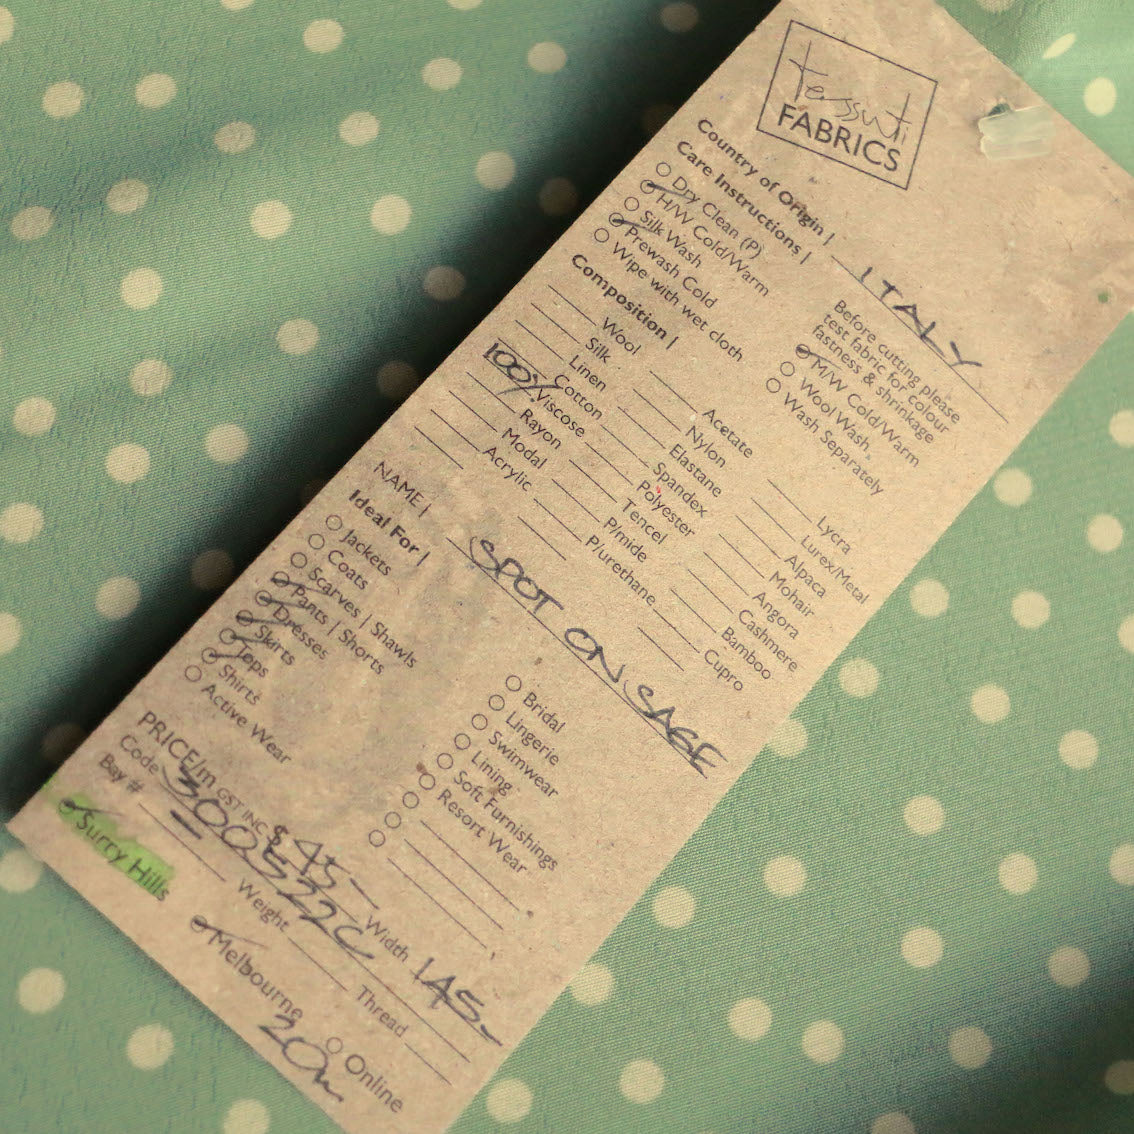 tessuti
FABRICS
Country of Origin | ITALY
Care Instructions |
Dry Clean (P)
H/W Cold/Warm
Silk Wash
Prewash Cold
Wipe with wet cloth
Before cutting please
test fabric for colour
fastness & shrinkage
M/W Cold/Warm
Wool Wash
Wash Separately
Composition |
Wool
Silk
Linen
Cotton
100% Viscose
Rayon
Modal
Acrylic
Acetate
Nylon
Elastane
Spandex
Polyester
Tencel
P/mide
P/urethane
Lycra
Lurex/Metal
Alpaca
Mohair
Angora
Cashmere
Bamboo
Cupro
NAME | SPOT ON SAGE
Ideal For |
Jackets
Coats
Scarves | Shawls
Pants | Shorts
Dresses
Skirts
Tops
Shirts
Active Wear
Bridal
Lingerie
Swimwear
Lining
Soft Furnishings
Resort Wear
PRICE/m GST INC $45- Width 145-
Code 300522C Thread
Bay # Weight
Surry Hills Melbourne Online
20m